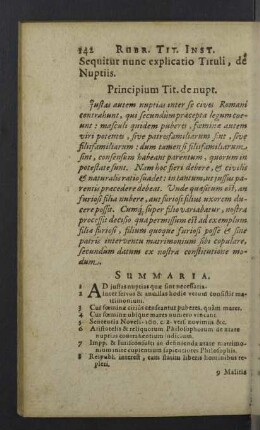 142 RUBR. TIT. INST.
Sequitur nunc explicatio Tituli, de
Nuptiis.
Principium Tit. de nupt.
Justas autem nuptias inter se cives Romani
contrahunt, qui secundum præcepta legum coe-
unt: masculi quidem puberes, fœminæ autem
viri potentes, sive patresfamiliarum sint, sive
filiifamiliarum: dum tamen si filiifamiliarum
sint, consensum habeant parentum, quorum in
potestate sunt. Nam hoc fieri debere, & civilis
& naturalis ratio suadet: in tantum, ut jussus pa-
rentis præcedere debeat. Unde quæsitum est, an
furiosi filia nubere, aut furiosi filius uxorem du-
cere possit. Cumq, super filio variabatur, nostra
processit decisio: qua permissum est ad exemplum
filiæ furiosi, filium quoque furiosi posse & sine
patris interventu matrimonium sibi copulare,
secundum datum ex nostra constitutione mo-
dum.
SUMMARIA.
1 AD justas nuptias quæ sint necessaria.
2 Inter servos & ancillas hodie verum consistit ma-
trimonium.
3 Cur fœmina citius censeantur puberes, quam mares.
4 Cur fœminæ ubique mares numero vincant.
5 Sententia Novell. 100. c. 2. vers. novimus &c.
6 Aristotelis & reliquorum Philosophorum de ætate
nuptiis conveniente
7 Imp. & Jurisconsulti in definienda ætate matrimo-
nium inire cupientium sapientiores Philosophis.
8 Reipubl. interest, eam statim liberis hominibus re-
pleri.
9 Malitia